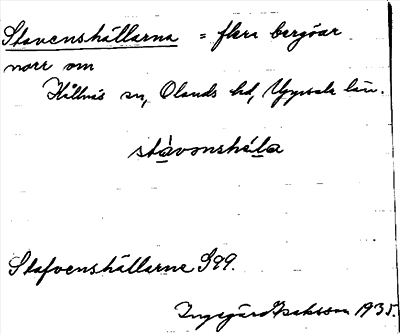 Stavenshällarna = flera bergöar
norr om
Hållnäs sn, Olands hd, Uppsala län.
stàvonshéla
Stafvenshällarne S 99.
Ingegärd Isaksson 1935.